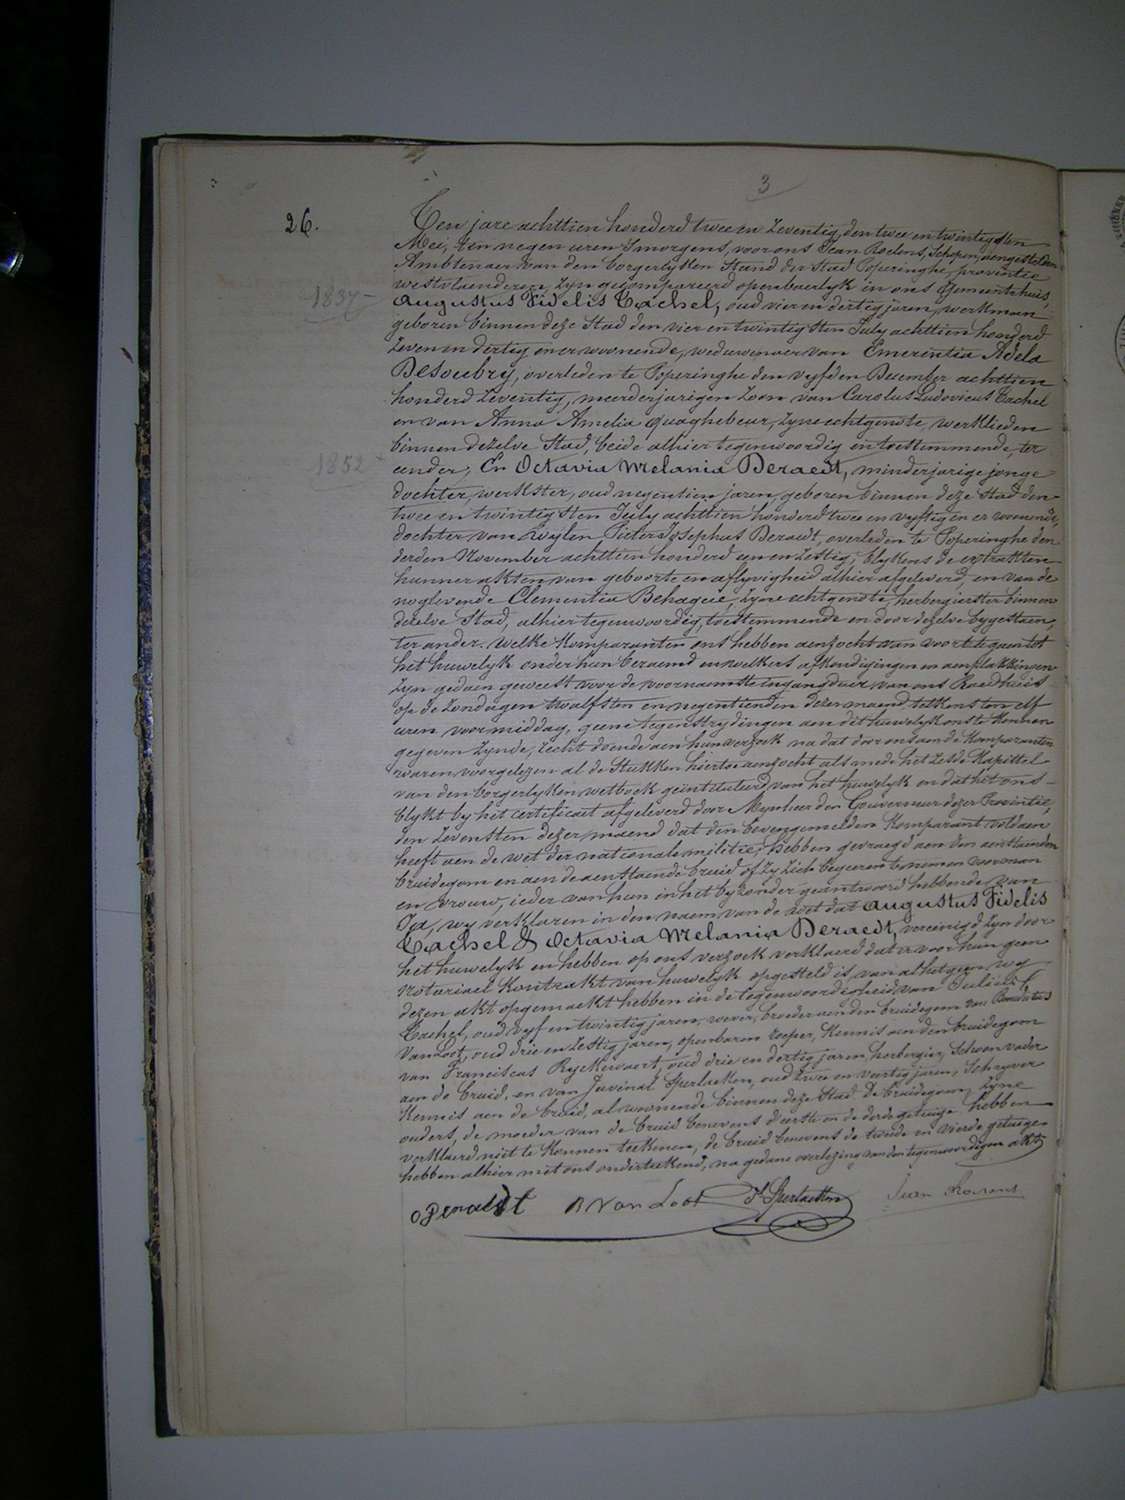 3
26.
Ten jare achttien honderd twee en zeventig, den twee en twintigsten
Mei, ten negen uren 'smorgens, voor ons Jean Roelens, Schepen, aengestelden
Ambtenaer van den borgerlyken Stand der Stad Poperinghe, provintie
westvlaenderen, zyn gecompareerd openbaerlyk in ons Gemeentehuis,
1837
Augustus Fidelis Cachel, oud vier en dertig jaren, werkman
geboren binnen deze Stad den vier en twintigsten July achttien honderd
zeven en dertig en er woonende, weduwenaer van Emerentia Adela
Desoubry, overleden te Poperinghe den vyfden December achttien
honderd zeventig, meerderjarigen zoon van Carolus Ludovicus Cachel
en van Anna Amelia Quaghebeur, zyne echtgenote, werklieden
binnen dezelve Stad, beide alhier tegenwoordig en toestemmende, ter
1852
eender; En Octavia Melania Deraedt, minderjarige jonge
dochter, werkster, oud negentien jaren, geboren binnen deze Stad den
twee en twintigsten July achttien honderd twee en vyftig en er woonende,
dochter van wylen Pieter Josephus Deraedt, overleden te Poperinghe den
derden November achttien honderd een en zestig, blykens de extrakten
hunner akten van geboorte en aflyvigheid alhier afgeleverd, en van de
noglevende Clementia Behague, zyne echtgenote, herbergierster binnen
dezelve Stad, alhier tegenwoordig, toestemmende en door dezelve bygestaen,
ter ander. welke komparanten ons hebben aenzocht van voort te gaen tot
het huwelyk onder hun beraemd en welkers afkondigingen en aenplakkingen
zyn gedaen geweest voor de voornaemste ingangdeur van ons Raedhuis
op de Zondagen twalfsten en negentienden dezer maend telkens ten elf
uren voormiddag, geene tegenstrydingen aen dit huwelyk onste kennen
gegeven zynde, recht doende aen hun verzoek na dat door ons aen de komparanten
waren voorgelezen al de Stukken hiertoe aenzocht als mede het zesde Kapittel
van den borgerlyken wetboek geintituleerd van het huwelyk en dat het ons
blykt by het certificaet afgeleverd door Mynheer den Gouverneur dezer Provintie,
den zevensten dezer maend dat den bovengemelden komparant voldaen
heeft aen de wet der nationale militie; hebben gevraegd aen den aenstaenden
bruidegom en aen de aenstaende bruid of zy zich begeeren te nemen voor man
en vrouw, ieder van hun in het byzonder geantwoord hebbende van
Ja, wy verklaren in den naem van de wet dat Augustus Fidelis
Cachel & Octavia Melania Deraedt, vereenigd zyn door
het huwelyk en hebben op ons verzoek verklaerd dat er voor hun geen
Notariael kontrakt van huwelyk opgesteld is, van al hetgeen wy
dezen akt opgemaekt hebben in de tegenwoordigheid van Julius
Cachel, oud vyf en twintig jaren, wever, broeder aen den bruidegom, van
Van Loot, oud drie en zestig jaren, openbaren roeper, Kennis aen den bruidegom
van Franciscus Ryckewaert, oud drie en dertig jaren herbergier, Schoonvader
aen de bruid, en van Juvenal Sperlaeken, oud twee en veertig jaren, Schryver
Kennis aen de bruid, al woonende binnen deze Stad. De bruidegom, zyne
ouders, de moeder van de bruid benevens d'eerste en de derde getuige hebben
verklaerd niet te konnen teekenen, de bruid benevens de tweede en vierde getuigen
hebben alhier met ons onderteekend, na gedane overlezing van den tegenwoordigen akt
O Deraedt B Van Loot J. Sperlaeken Jean Roelens